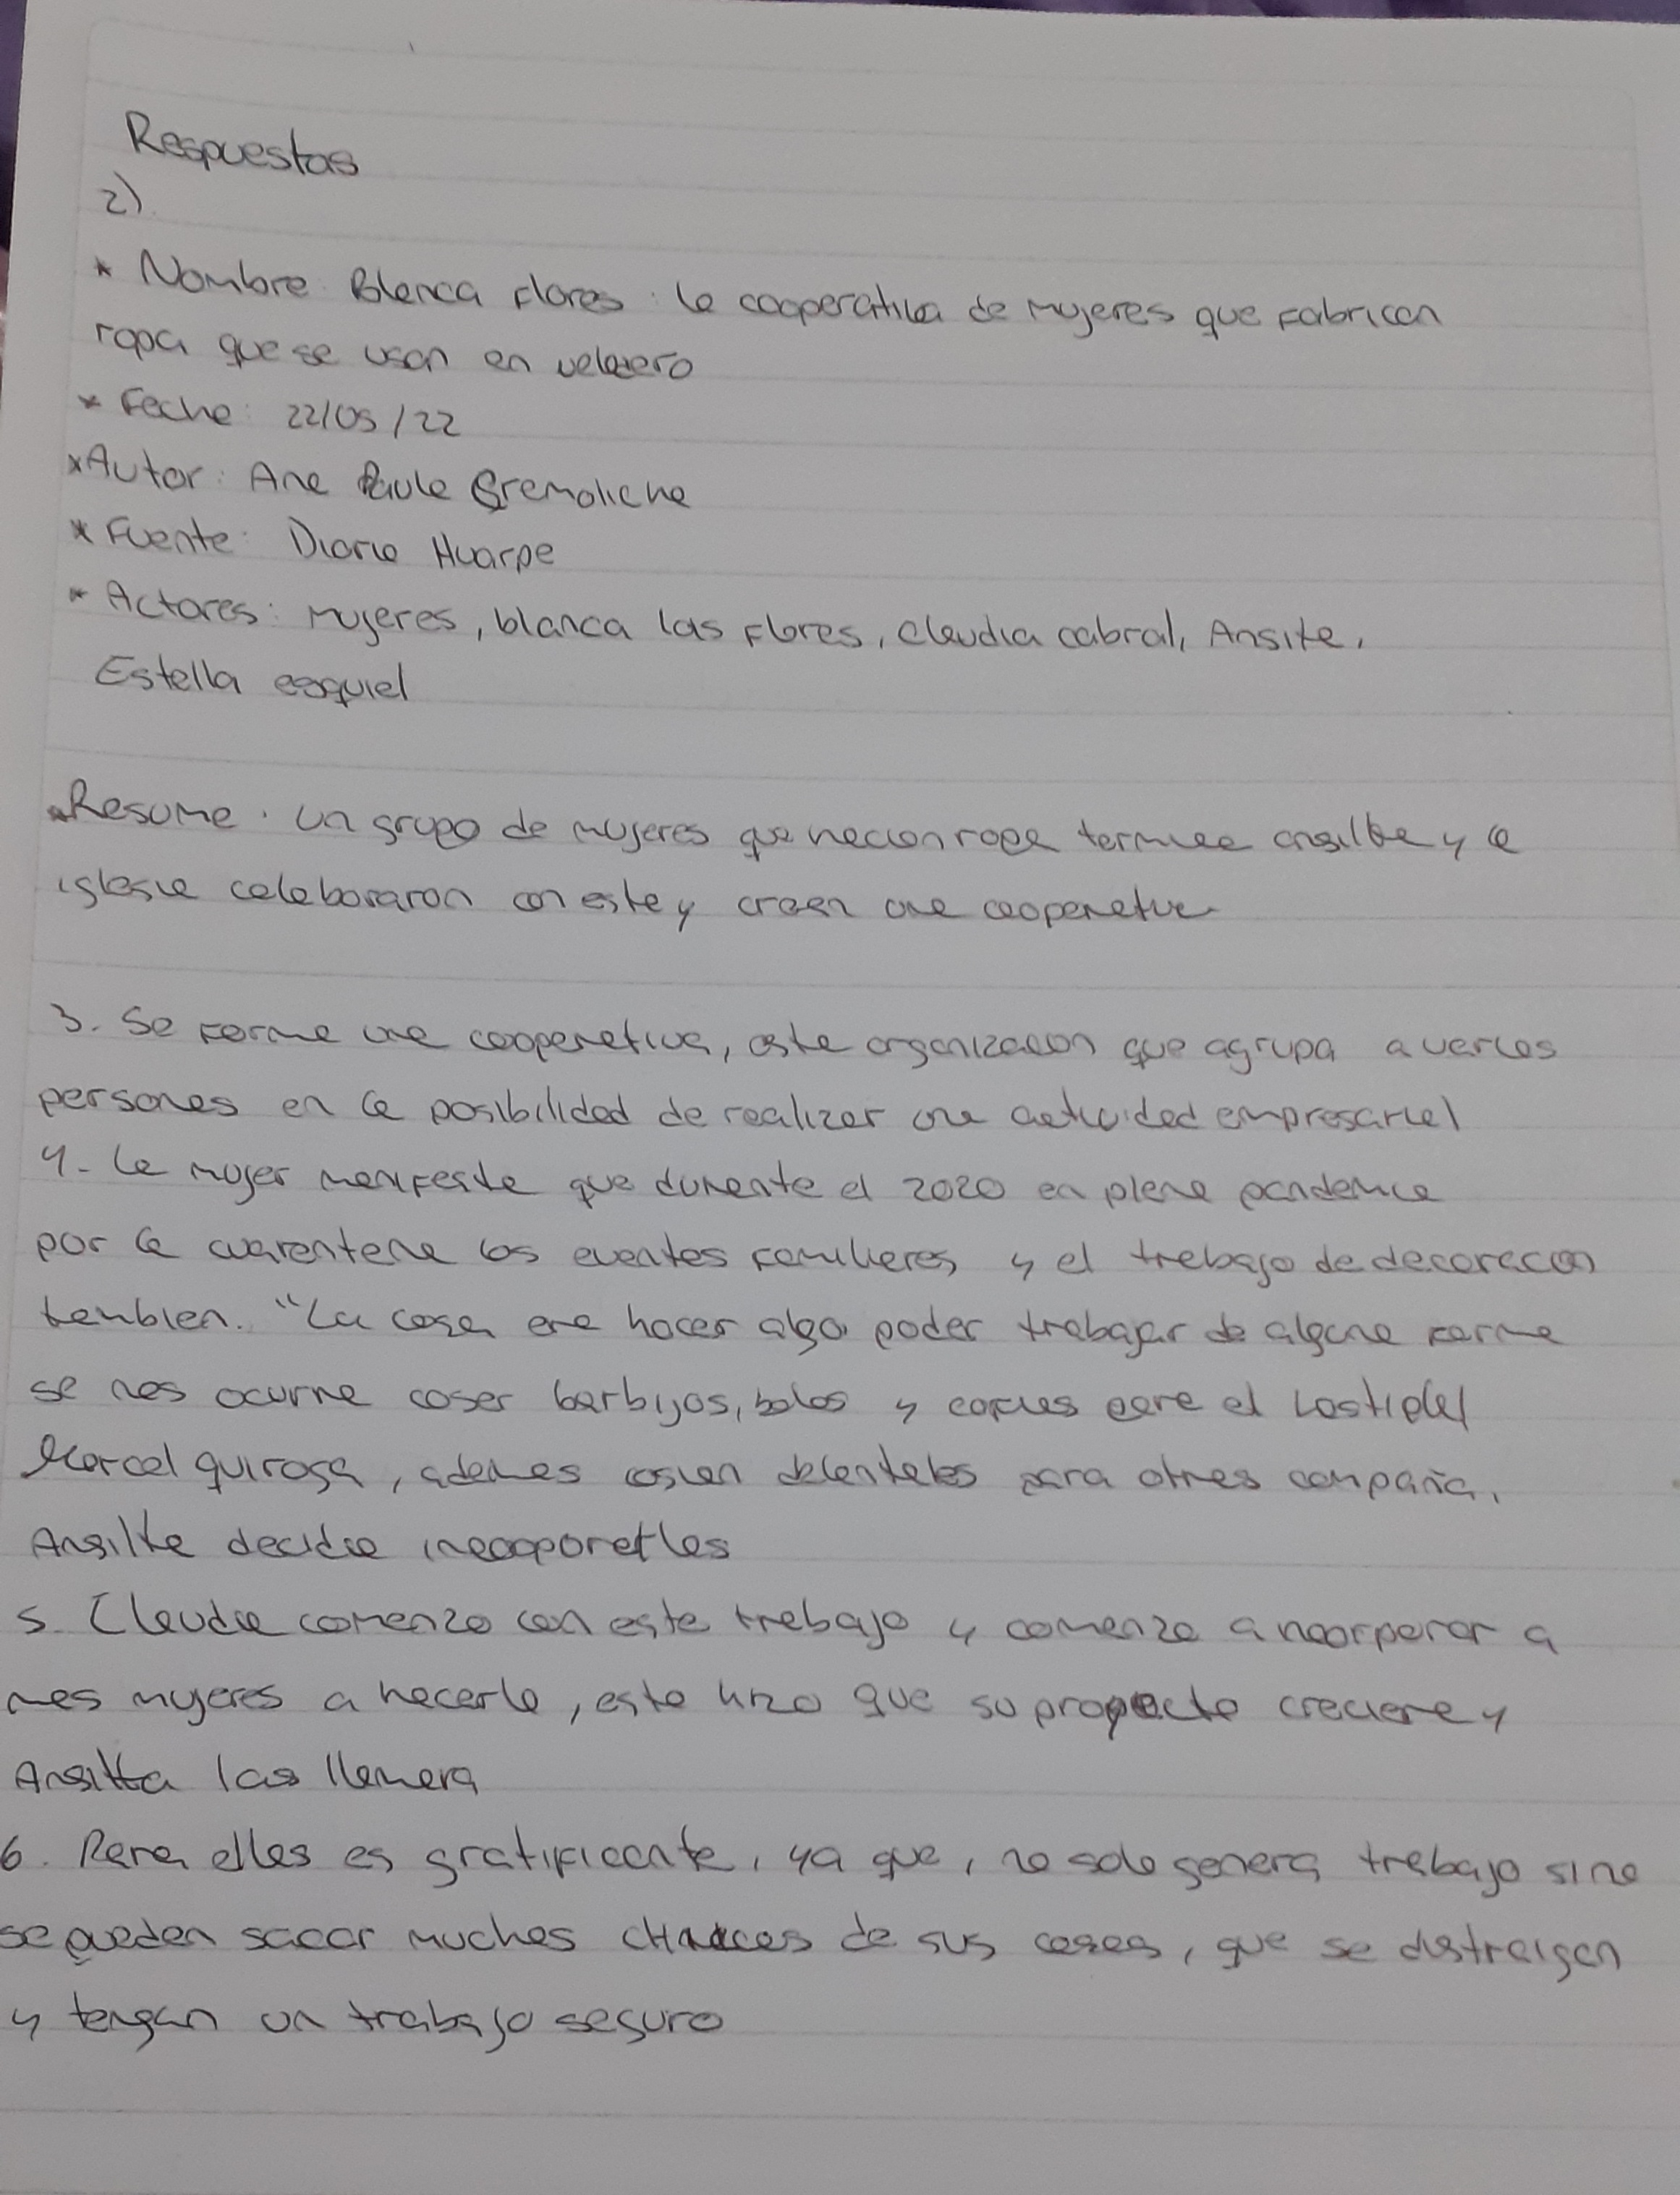 Respuestas
2)
* Nombre: Blanca Flores: la cooperativa de mujeres que fabrican
ropa que se usan en veladero
* Fecha: 22/05/22
* Autor: Ana Paula Gremoliche
* Fuente: Diario Huarpe
* Actores: mujeres, blanca las flores, Claudia cabral, Ansite,
Estella esquiel
* Resume. un grupo de mujeres que hacian ropa termica y la
iglesia colaboraron con este y crean una cooperativa
3. Se forma una cooperativa, esta organizacion que agrupa a varias
personas en la posibilidad de realizar una actividad empresarial
4- la mujer manifesta que durante el 2020 en plena pandemia
por la cuarentena los eventos familiares y el trabajo de decoracion
tambien. "La cosa era hacer algo poder trabajar de alguna forma
se nos ocurre coser barbijos, batas y cofias para el hostipal
Marcel quiroga, ademas cosian delantales para otras compañia.
Ansilta decidio
5. Claudia comenzo con este trabajo y comenzo a incorporar a
mas mujeres a hacerlo, esto hizo que su proyecto creciera y
Ansilta las llamara
6. Para ellas es gratificante, ya que, no solo genera trabajo sino
se pueden sacar muchas chicas de sus casas, que se distraigan
y tengan un trabajo seguro